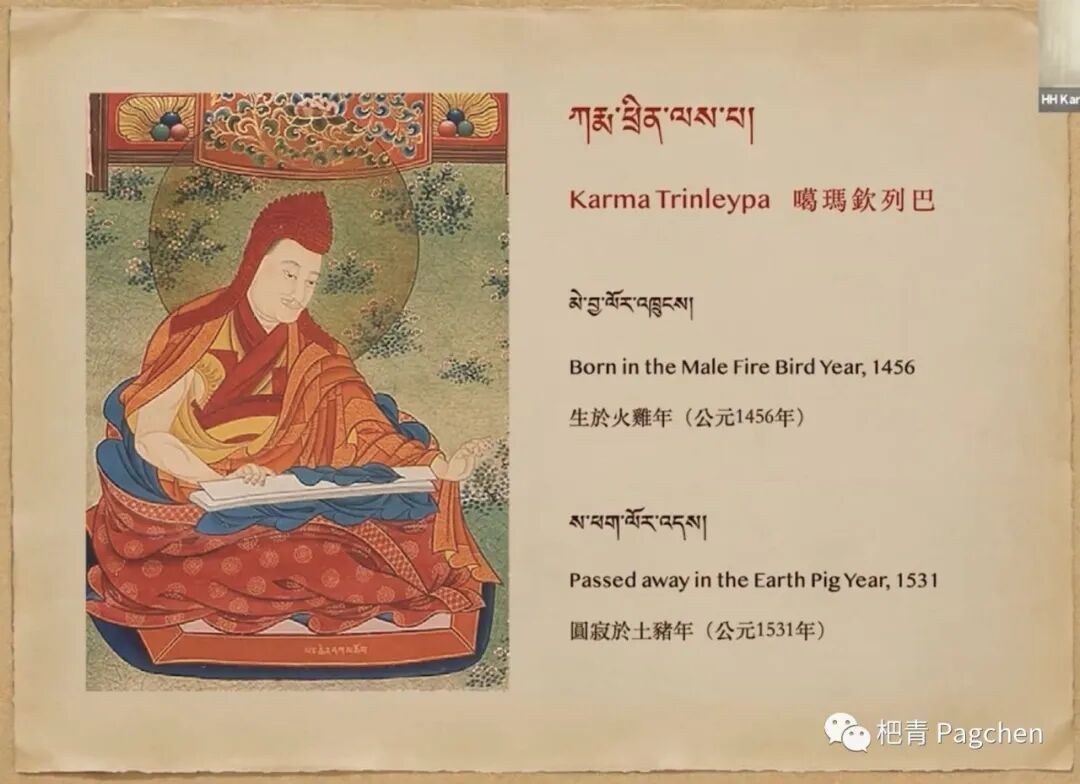 ཀརྨ་ཕྲིན་ལས་པ།
Karma Trinleypa 噶瑪欽列巴
མེ་བྱ་ལོར་འཁྲུངས།
Born in the Male Fire Bird Year, 1456
生於火雞年（公元1456年）
ས་ཕག་ལོར་འདས།
Passed away in the Earth Pig Year, 1531
圓寂於土豬年（公元1531年）
HH Kar
杷青 Pagchen